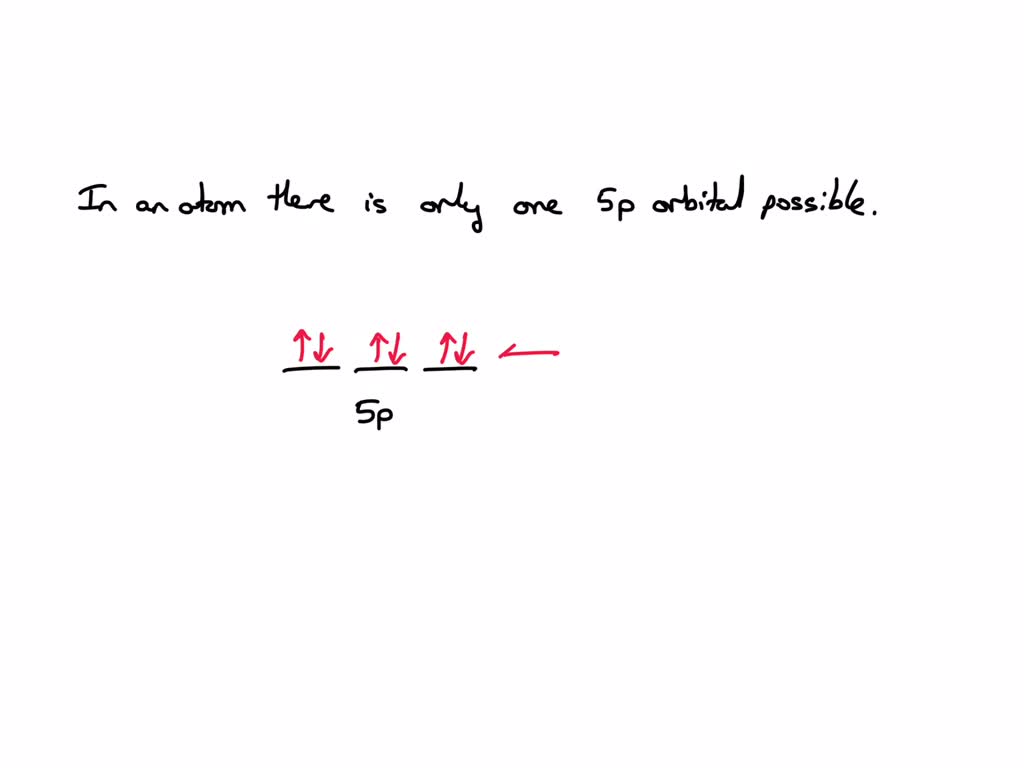 In an atom there is only one 5p orbital possible.
↑↓ ↑↓ ↑↓ ←
5p